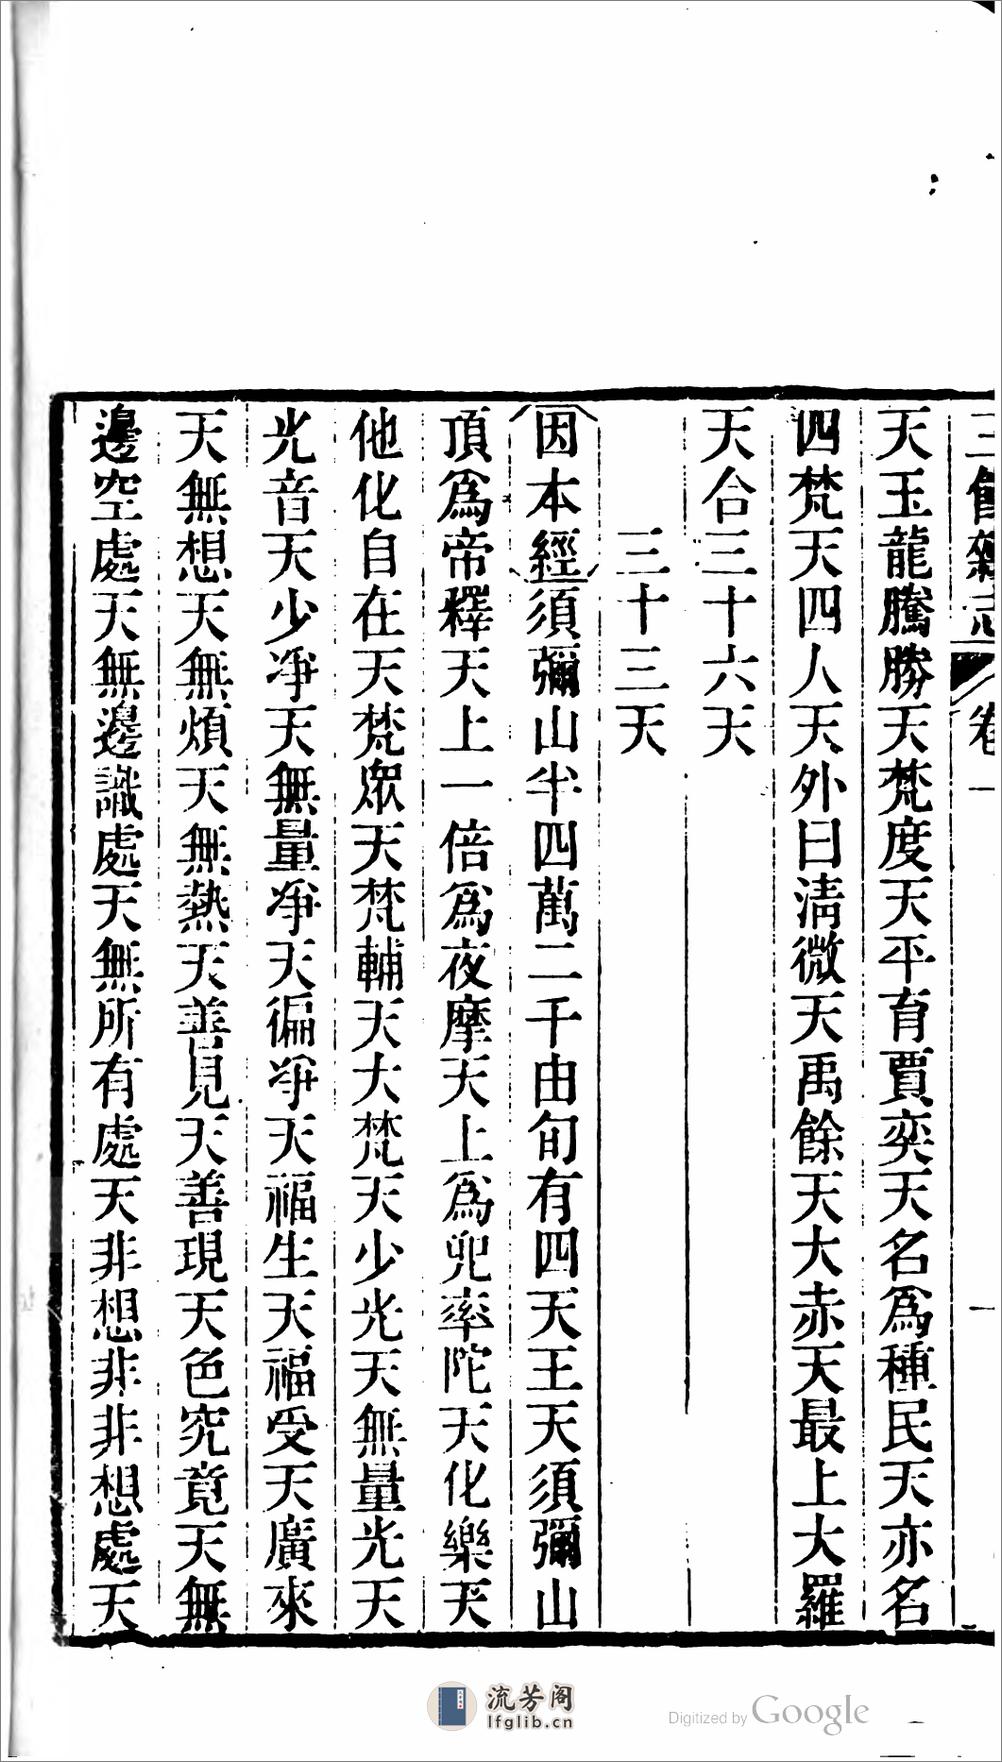 三餘雜志 卷一 一
天玉龍騰勝天梵度天平育賈奕天名爲種民天亦名
四梵天四人天外曰清微天禹餘天大赤天最上大羅
天合三十六天
三十三天
因本經須彌山半四萬二千由旬有四天王天須彌山
頂爲帝釋天上一倍爲夜摩天上爲兜率陀天化樂天
他化自在天梵眾天梵輔天大梵天少光天無量光天
光音天少凈天無量凈天徧凈天福生天福受天廣來
天無想天無煩天無熱天善見天善現天色究竟天無
邊空處天無邊識處天無所有處天非想非非想處天
流芳阁
lfglib.cn
Digitized by Google